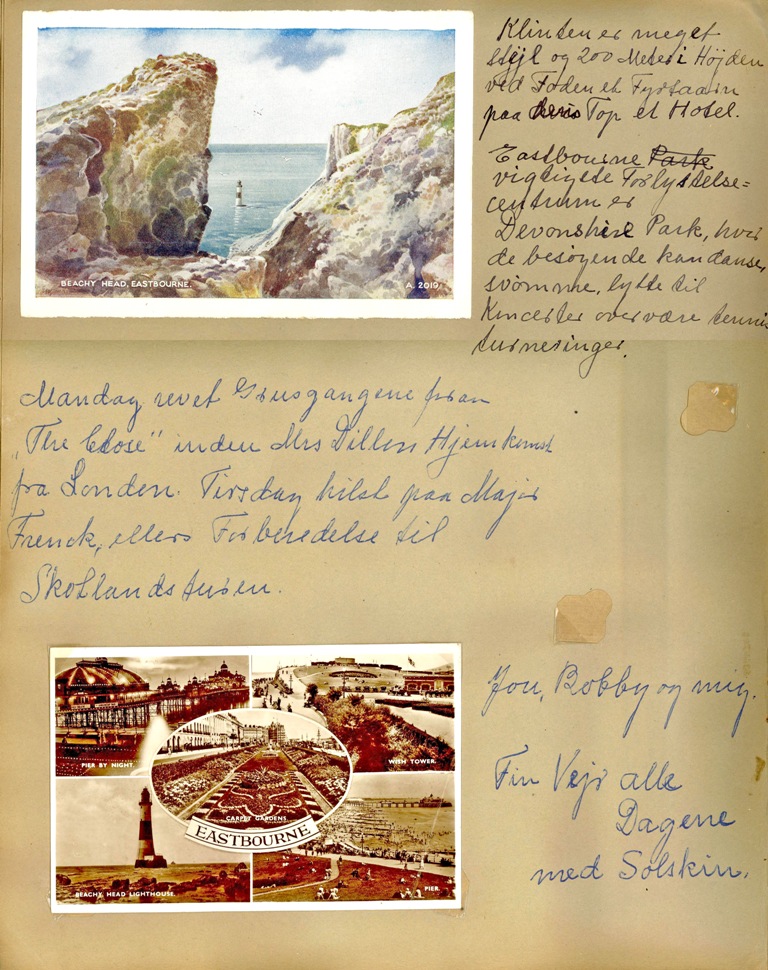 Klinten er meget
stejl og 200 Meter i Højden
ved Foden et Fyrtaarn
paa dens Top et Hotel.
Eastbourne Park
vigtigste Forlystelse=
centrum er
Devonshire Park, hvor
de besøgende kan danse,
svømme, lytte til
Koncerter overvære tennis
turneringer.
BEACHY HEAD, EASTBOURNE.
A. 2019
Mandag revet Grusgangene foran
„The Close" inden Mrs Dillon Hjemkomst
fra London. Tirsdag hilst paa Major
French, ellers Forberedelse til
Skotlandsturen.
PIER BY NIGHT.
WISH TOWER.
CARPET GARDENS.
EASTBOURNE
BEACHY HEAD LIGHTHOUSE.
PIER.
Jou, Bobby og mig.
Fin Vejr alle
Dagene
med Solskin.